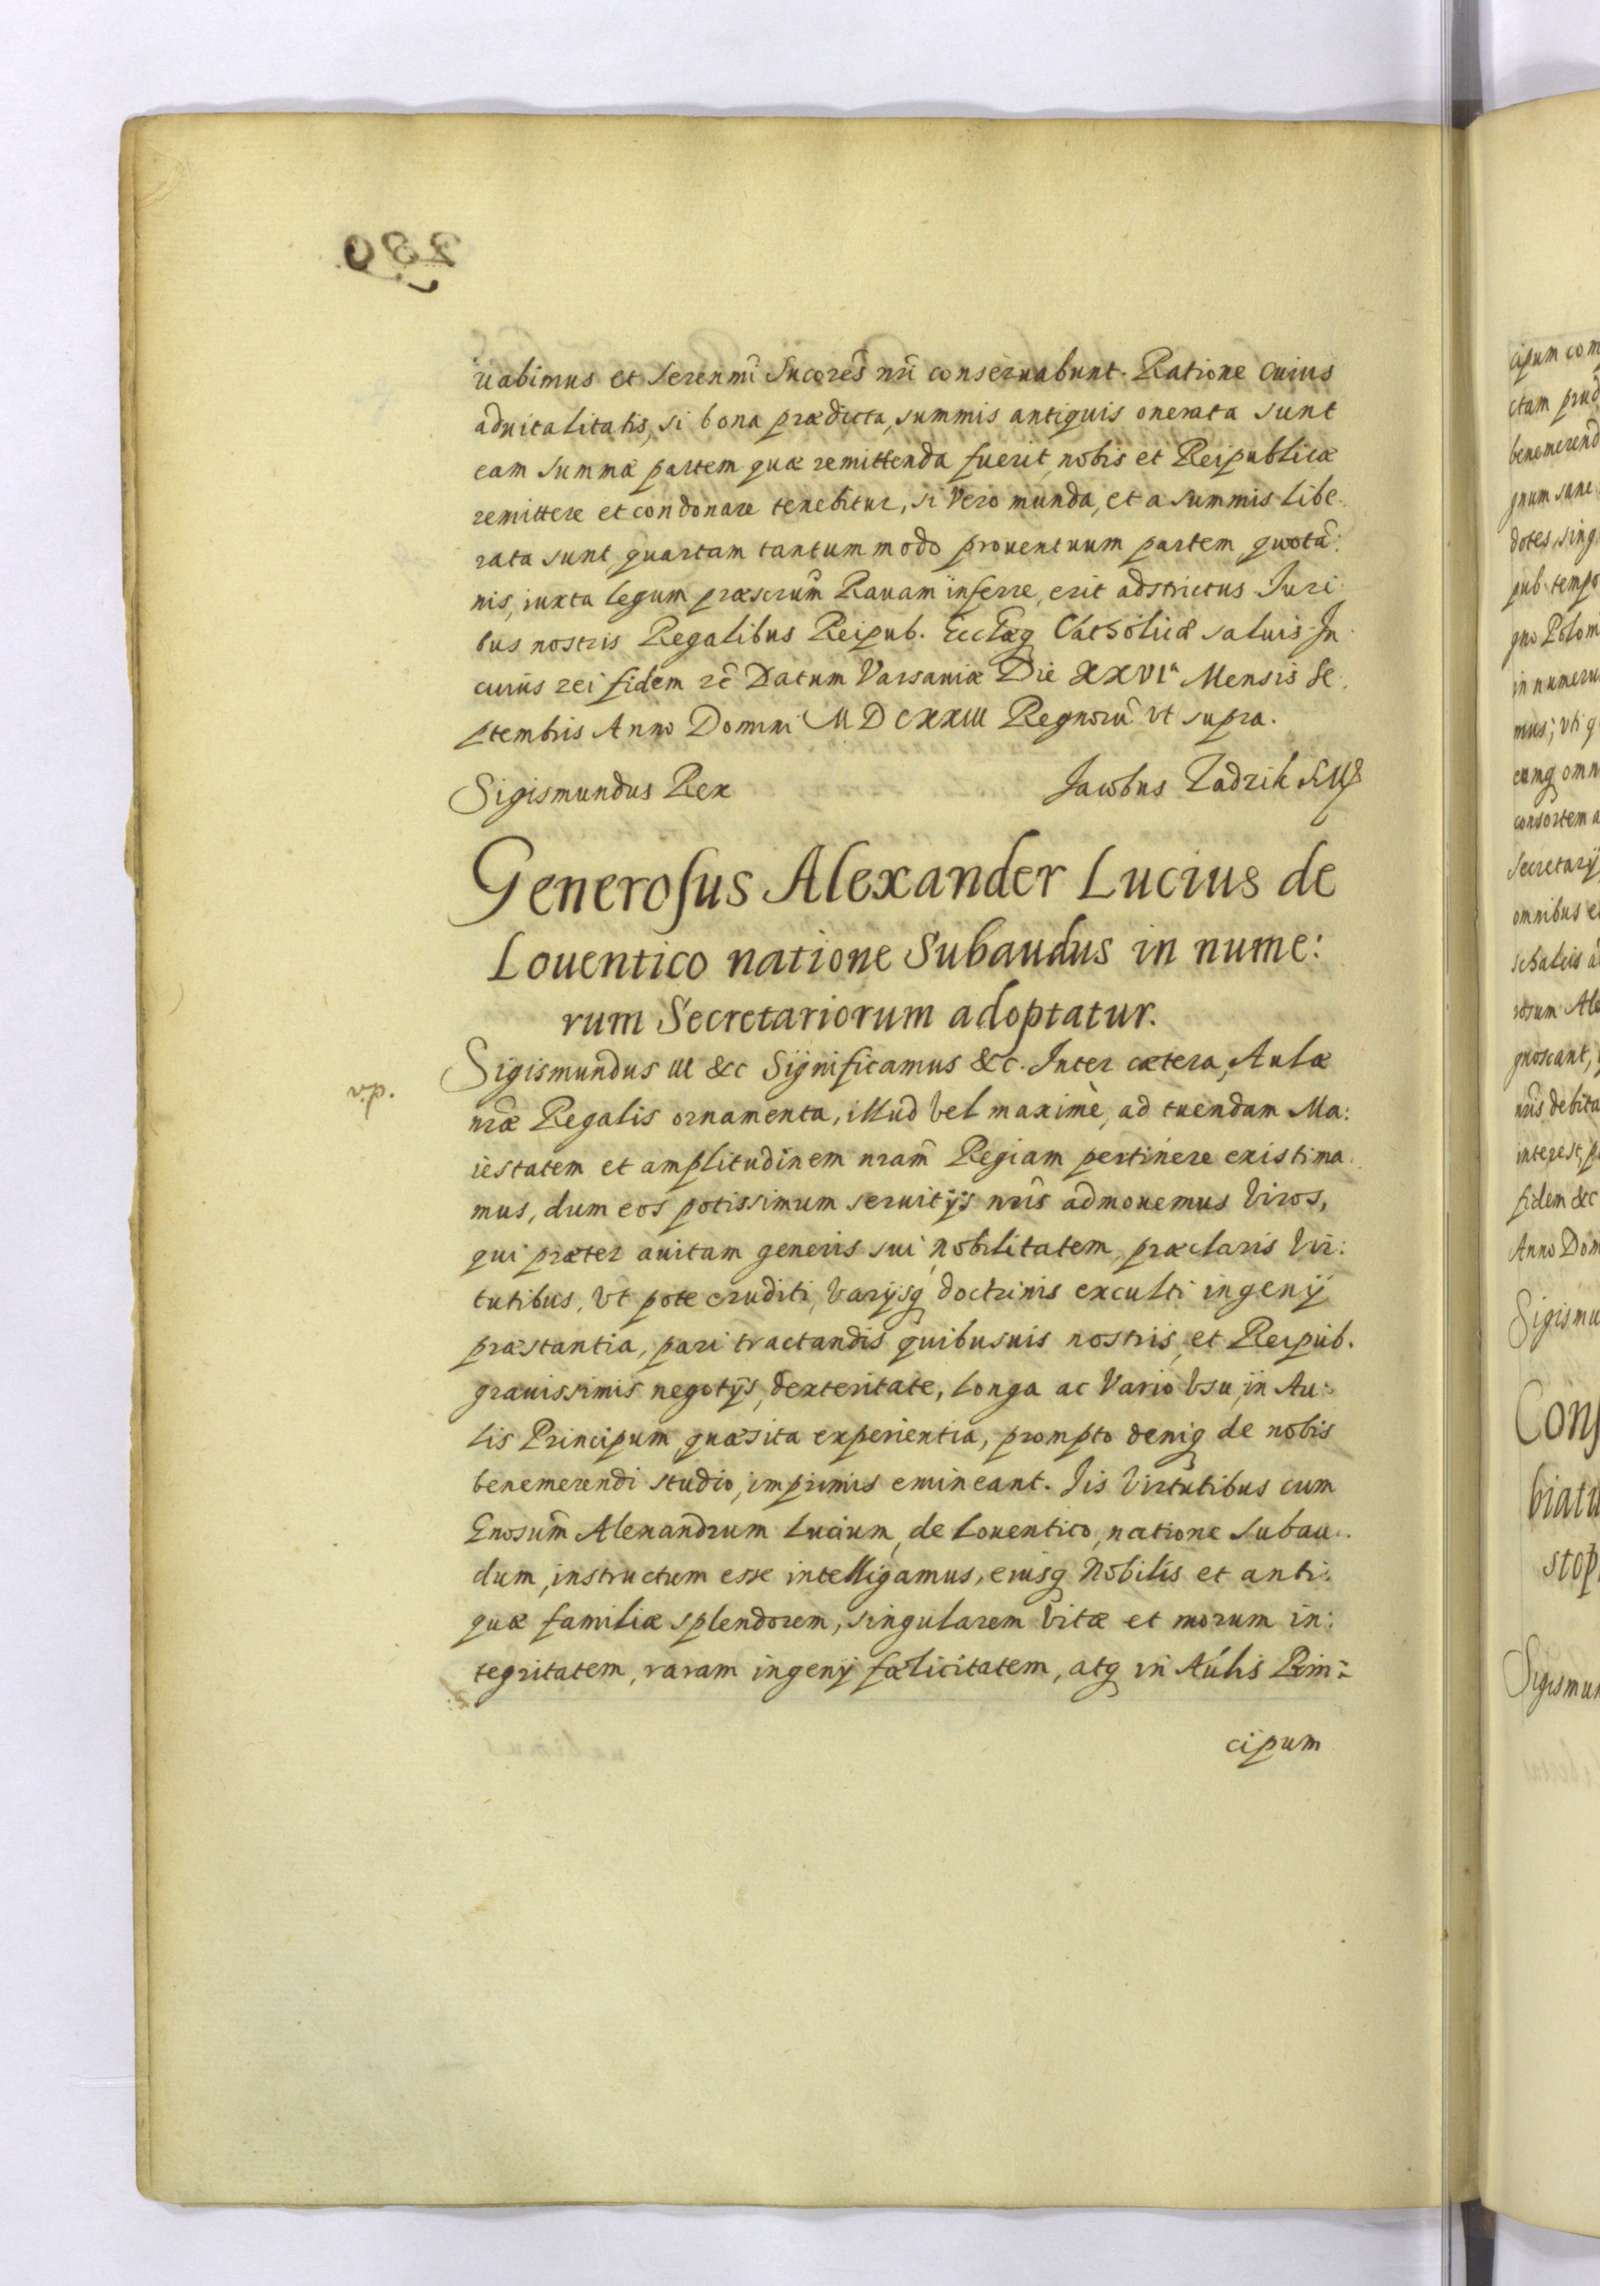 uabimus et Serenmi Sucores nri conseruabunt. Ratione cuius
aduitalitatis, si bona prædicta, summis antiquis onerata sunt
eam summæ partem quæ remittenda fuerit, nobis et Reipublicæ
remittere et condonare tenebitur, si Vero munda, et a summis libe:
rata sunt, quartam tantummodo prouentuum partem, quotã:
nis, iuxta legum præscrum Rauam inferre, erit adstrictus Iuri:
bus nostris Regalibus Reipub. Ecclæq Catholicæ saluis. In
cuius rei fidem &c Datum Varsauiæ Die XXVIa Mensis Se:
ptembris Anno Domini MDCXXIII Regnorũ vt supra.
Sigismundus Rex Jacobus Zadzik
Generosus Alexander Lucius de
Louentico natione Subaudus in nume:
rum Secretariorum adoptatur.
v.p.
Sigismundus III &c Significamus &c. Inter cætera, Aulæ
nræ Regalis ornamenta, illud vel maximè, ad tuendam Ma:
iestatem et amplitudinem nram Regiam pertinere existima:
mus, dum eos potissimum seruitijs nris admouemus Viros,
qui præter auitam generis sui nobilitatem, præclaris Vir:
tutibus, Vt pote eruditi, Varijsq doctrinis exculti ingenij
præstantia, pari tractandis quibusuis nostris, et Reipub.
grauissimis negotijs, dexteritate, longa ac Vario Vsu, in Au:
lis Principum quæsita experientia, prompto deniq de nobis
benemerendi studio, imprimis emineant. Iis Virtutibus cum
Gnosum Alexandrum Lucium, de Louentico, natione Subau:
dum, instructum esse intelligamus, eiusq Nobilis et anti:
quæ familiæ splendorem, singularem Vitæ et morum in:
tegritatem, raram ingenij fælicitatem, atq in Aulis Prin:
cipum
280.
cipum com
ctam prud
benemerend
gnum sane
dotes, sing
pub. tempo
gno Polon
in numeru
mus; vti q
eumq omn
consortem a
Secretarij
omnibus e
rosum Ale
gnoscant,
nris debita
interest, p
fidem &c
Anno Dom
Sigismu
Cons
biatu
stop
Sigismun